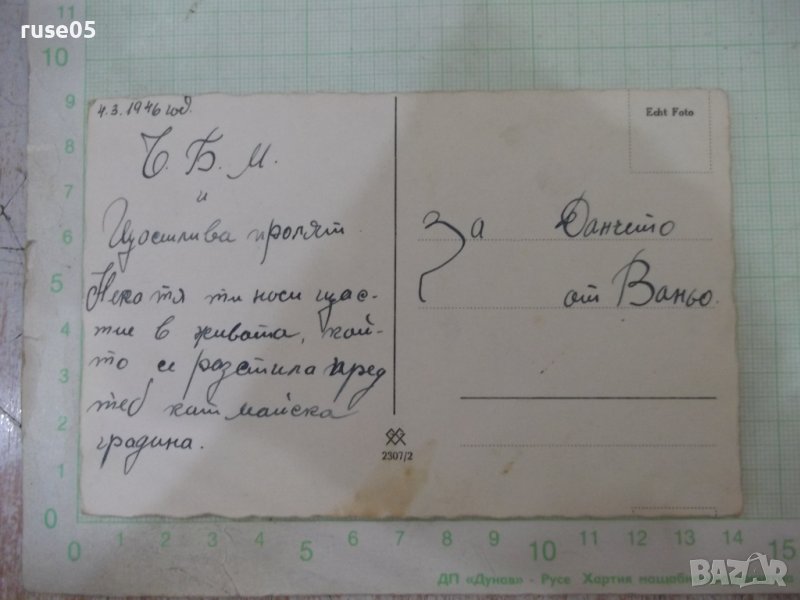 ruse05
4.3.1946 год.
Ч. Б. М.
и
Щастлива пролят.
Нека тя ти носи щас-
тие в живота, кой-
то се разстила пред
теб кат майска
градина.
Echt Foto
За Данчето
от Ваньо.
2307/2
11
10
9
8
7
6
5
4
3
2
1
0
0 1 2 3 4 5 6 7 8 9 10 11 12 13 14 15
ДП «Дунав» - Русе Хартия мащабн
BAZAR